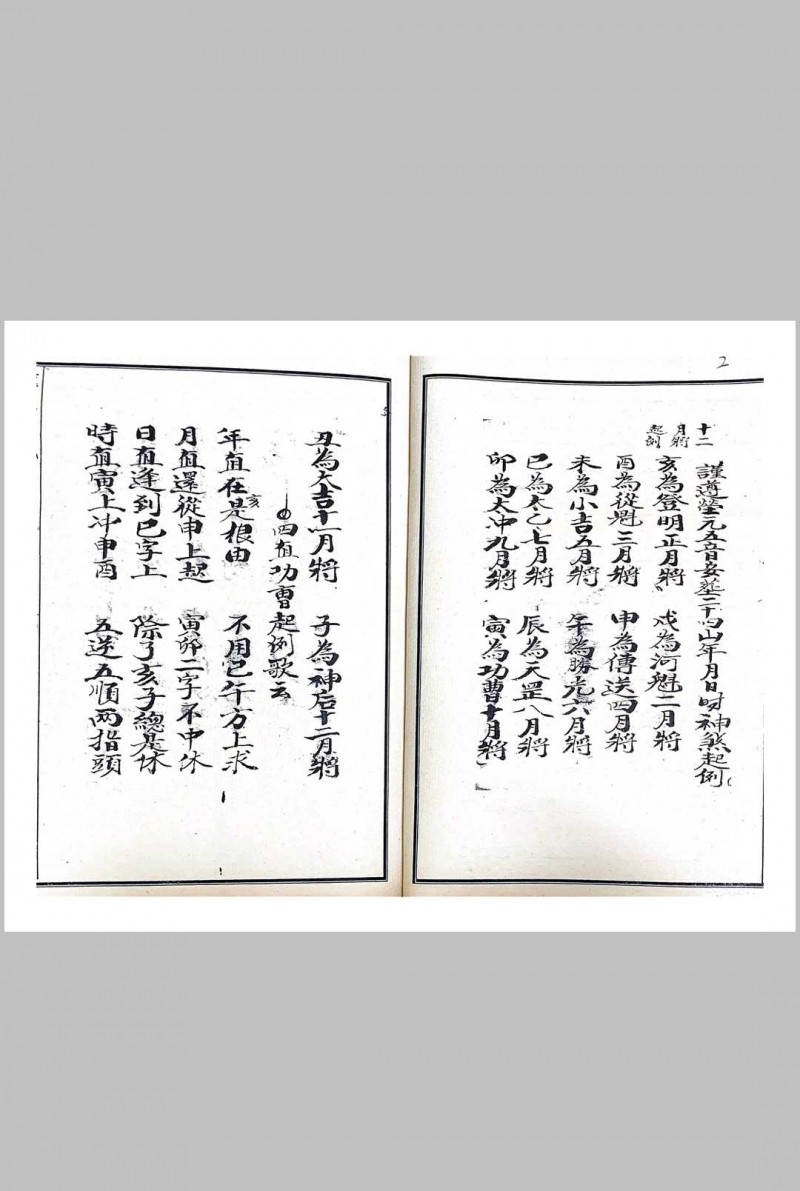 2
十二
月將
起例
謹遵塋元五音安塟二十四山年月日时神煞起例
亥為登明正月將 戍為河魁二月將
酉為從魁三月將 申為傳送四月將
未為小吉五月將 午為勝光六月將
巳為太乙七月將 辰為天罡八月將
卯為太冲九月將 寅為功曹十月將
丑為大吉十一月將 子為神后十二月將
四直功曹起例歌云
年直在亥是根由 不用巳午方上求
月直還從申上起 寅卯二字不中休
日直逢到巳字上 除了亥子總是休
時直寅上冲申酉 五逆五順两指頭